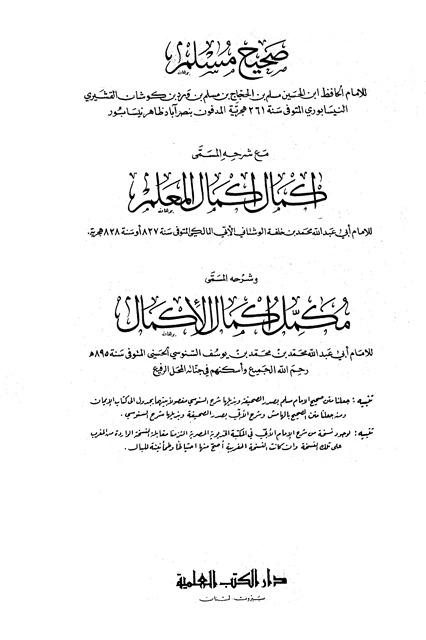 صحيح مسلم
للإمام الحافظ ابن الحسين مسلم بن الحجاج بن مسلم بن ورد بن كوشان القشيري
النيسابوري المتوفى سنة ٢٦١ هجرية المدفون بنصر آباد ظاهر نيسابور
مع شرحه المسمى
إكمال إكمال المعلم
للإمام أبي عبد الله محمد بن خلفة الوشتاني الأبي المالكي المتوفى سنة ٨٢٧ أو سنة ٨٢٨ هجرية.
وشرحه المسمى
مكمل إكمال الإكمال
للإمام أبي عبد الله محمد بن محمد بن يوسف السنوسي الحسيني المتوفى سنة ٨٩٥ ه
رحم الله الجميع وأسكنهم في جنانه المحل الرفيع
تنبيه : جعلنا متن صحيح الإمام مسلم بصدر الصحيفة وبذيلها شرح السنوسي مفصولا بينهما بجدول إلا كتاب الإيمان
وقد جعلنا متن الصحيح بالهامش وشرح الأبي بصدر الصحيفة وبذيلها شرح السنوسي.
تنبيه : لوجود نسخة من شرح الإمام الأبي في المكتبة الخديوية المصرية التزمنا مقابلة النسخة الواردة من المغرب
على تلك النسخة وإن كانت النسخة المغربية أصح منها احتياطا وطمأنينة للبال.
دار الكتب العلمية
بيروت - لبنان